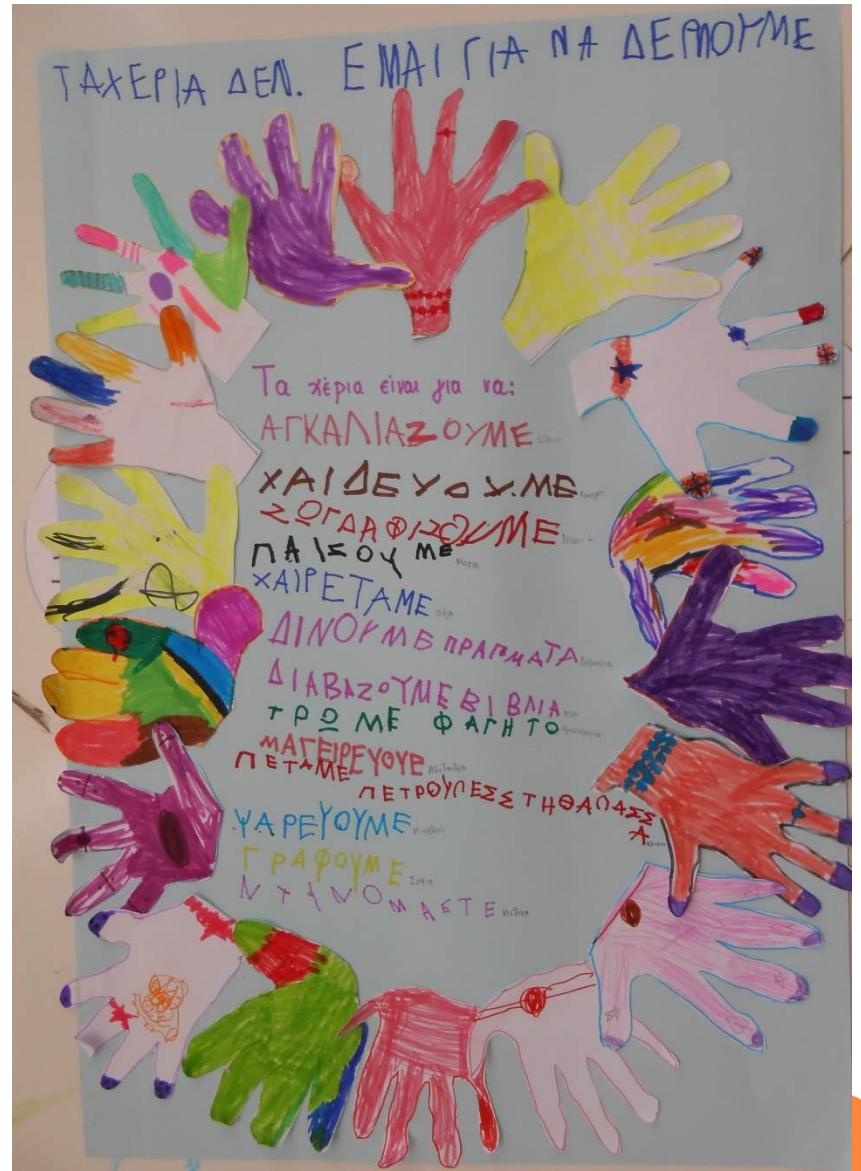 ΤΑΧΕΡΙΑ ΔΕΝ. ΕΜΑΙ ΓΙΑ ΝΑ ΔΕΡΝΟΥΜΕ
Τα χέρια είναι για να:
ΑΓΚΑΛΙΑΖΟΥΜΕ
ΧΑΙΔΕΥΟΥ.ΜΕ
ΖΩΓΔΑΦΙΖΟΥΜΕ
ΠΑΙΣΟΥΜΕ Μαρία
ΧΑΙΡΕΤΑΜΕ
ΔΙΝΟΥΜΕ ΠΡΑΓΜΑΤΑ
ΔΙΑΒΑΖΟΥΜΕ ΒΙΒΛΙΑ
ΤΡΩΜΕ ΦΑΓΗΤΟ
ΜΑΓΕΙΡΕΥΟΥΕ
ΠΕΤΑΜΕ ΠΕΤΡΟΥΛΕΣΣΤΗΘΑΛΑΣΣΑ
ΨΑΡΕΥΟΥΜΕ
ΓΡΑΦΟΥΜΕ Σοφία
ΝΤΥΝΟΜΑΣΤΕ